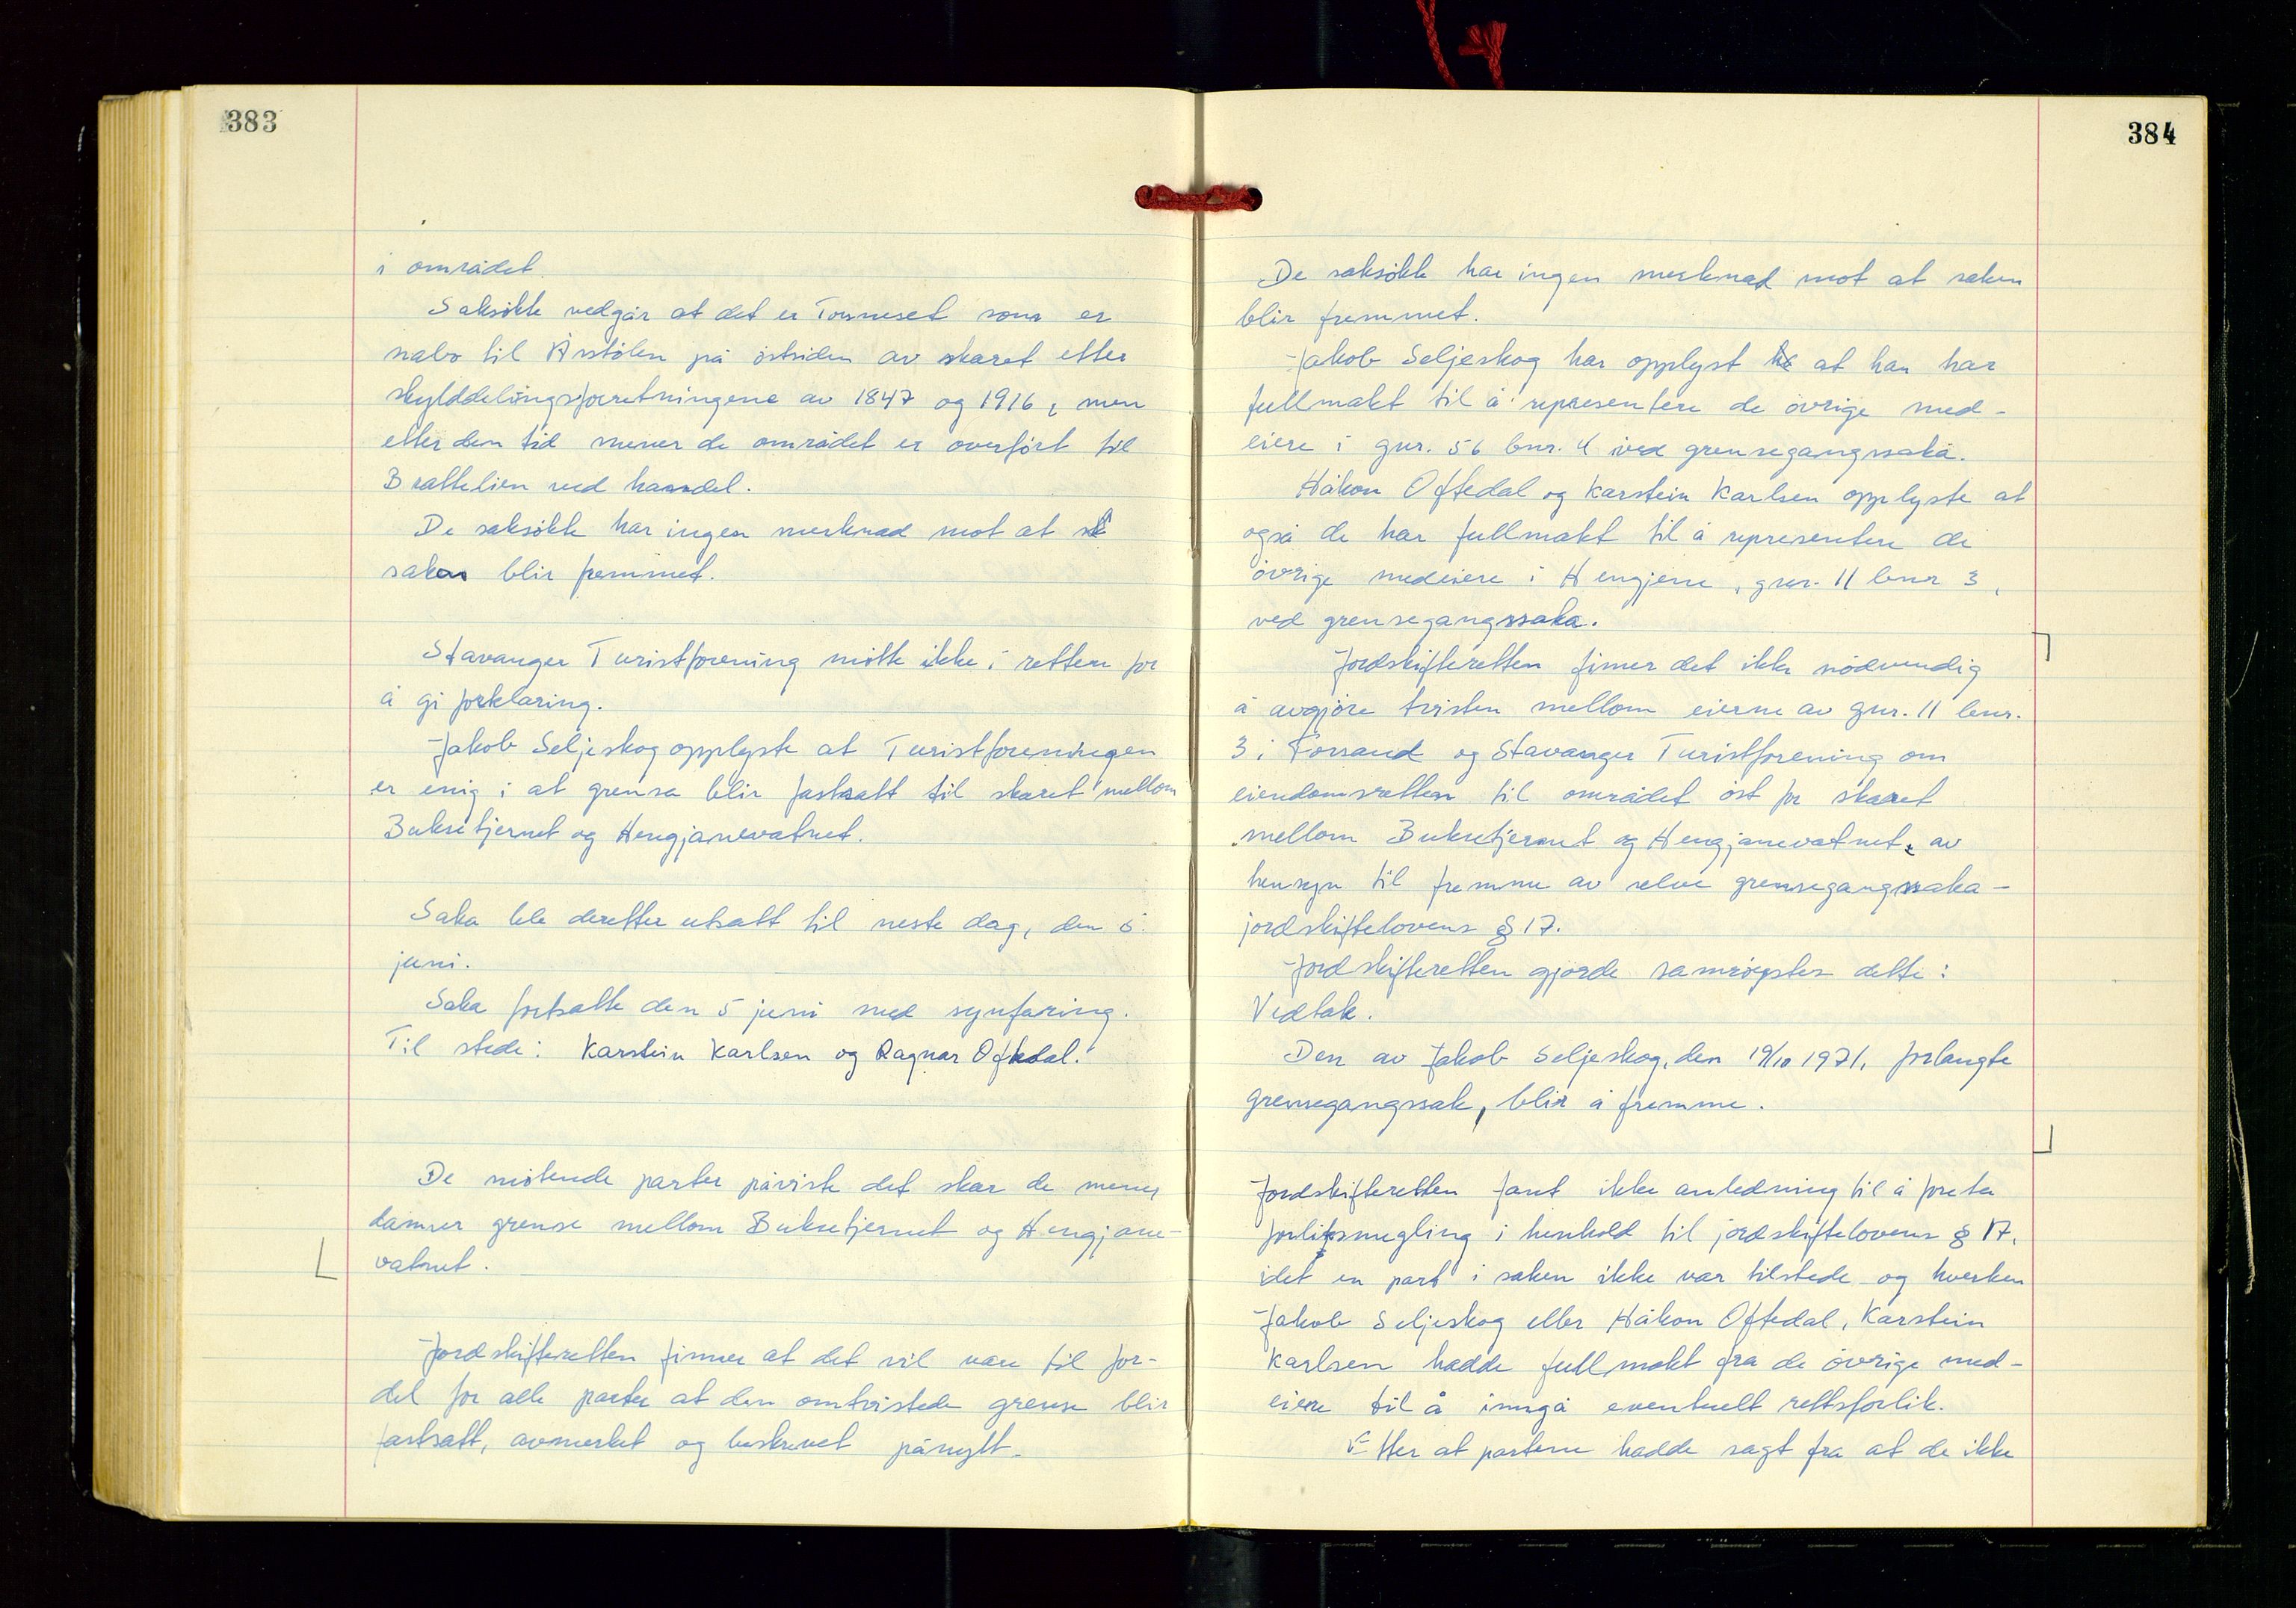 383
i området.
Saksökte vedgår at det er Tomneset som er
nabo til Årstölen på östsiden av skaret etter
skylddelingsforretningene av 1847 og 1916, men
etter den tid mener de området er overfört til
Brattelien ved handel.
De saksökte har ingen merknad mot at
saken blir fremmet.
Stavanger Turistforening mötte ikke i retten for
å gi forklaring.
Jakob Seljeskog opplyste at Turistforeningen
er enig i at grensa blir fastsatt til skaret mellom
Buksetjernet og Hengjanevatnet.
Saka ble deretter utsatt til neste dag, den 5.
juni.
Saka fortsatte den 5 juni med synfaring.
Til stede: Karstein Karlsen og Ragnar Oftedal.
De mötende parter påviste det skar de mener
danner grense mellom Buksetjernet og Hengjane-
vatnet.
Jordskifteretten finner at det vil være til for-
del for alle parter at den omtvistede grense blir
fastsatt, avmerket og beskrevet pånytt.
384
De saksökte har ingen merknad mot at saken
blir fremmet.
Jakob Seljeskog har opplyst at han har
fullmakt til å representere de övrige med-
eiere i gnr. 56 bnr. 4 ved grensegangssaka.
Håkon Oftedal og Karstein Karlsen opplyste at
også de har fullmakt til å representere de
övrige medeiere i Hengjene, gnr. 11 bnr 3,
ved grensegangssaka.
Jordskifteretten finner det ikke nödvendig
å avgjöre tvisten mellom eierne av gnr. 11 bnr.
3 i Forsand og Stavanger Turistforening om
eiendomsretten til området öst for skaret
mellom Buksetjernet og Hengjanevatnet, av
hensyn til fremme av selve grensegangssaka -
jordskiftelovens § 17.
Jordskifteretten gjorde samröystes dette:
Vedtak.
Den av Jakob Seljeskog, den 19/10 1971, forlangte
grensegangssak, blir å fremme.
Jordskifteretten fant ikke anledning til å foreta
forliksmegling i henhold til jordskiftelovens § 17,
idet en part i saken ikke var tilstede og hverken
Jakob Seljeskog eller Håkon Oftedal, Karstein
Karlsen hadde fullmakt fra de övrige med-
eiere til å inngå eventuelt rettsforlik.
Etter at partene hadde sagt fra at de ikke